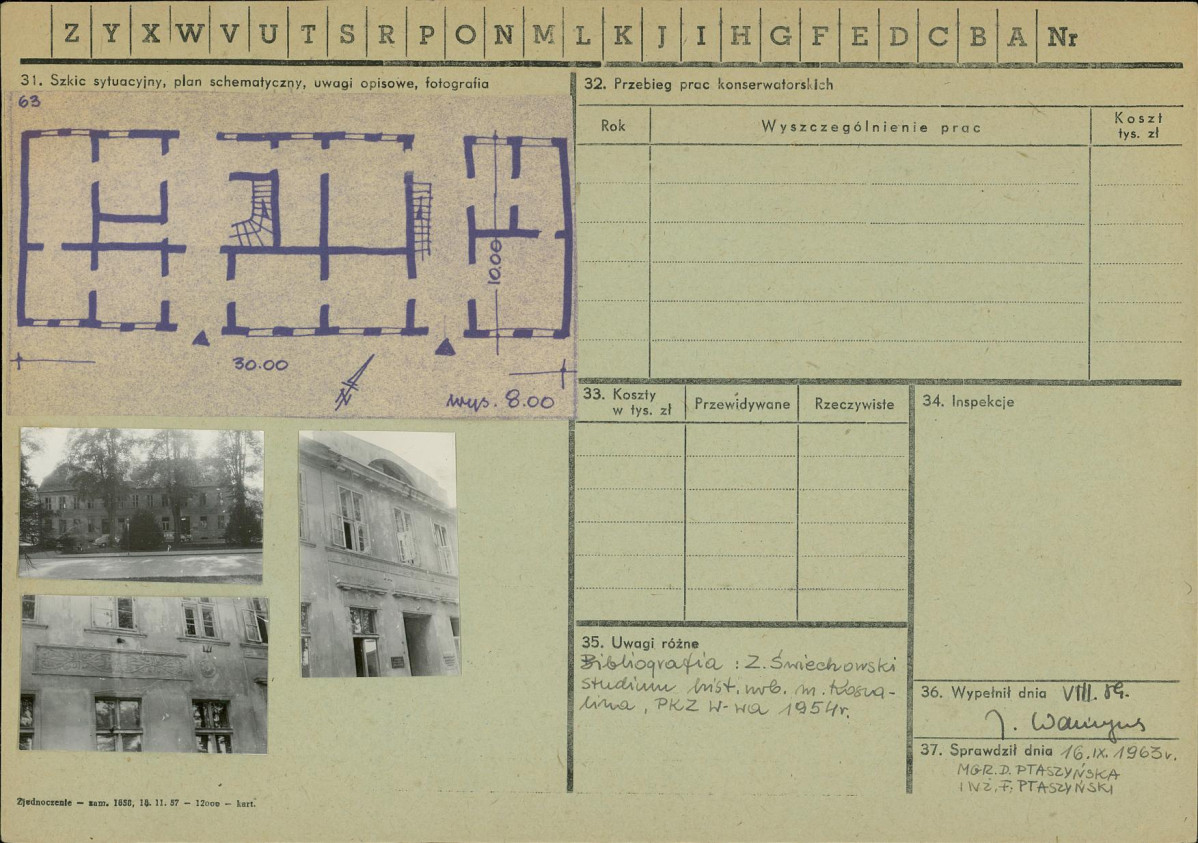 Z Y X W V U T S R P O N M L K J I H G F E D C B A Nr
31. Szkic sytuacyjny, plan schematyczny, uwagi opisowe, fotografia
63
10.00
30.00
N
wys. 8.00
Zjednoczenie — zam. 1658, 18. 11. 57 — 12000 — kart.
32. Przebieg prac konserwatorskich
Rok Wyszczególnienie prac Koszt
tys. zł
33. Koszty
w tys. zł Przewidywane Rzeczywiste
34. Inspekcje
35. Uwagi różne
Bibliografia : Z. Świechowski
studium hist. urb. m. Kosza-
lina, PKZ W-wa 1954r.
36. Wypełnił dnia VIII. 59.
37. Sprawdził dnia 16.IX.1963r.
MGR. D. PTASZYŃSKA
INŻ. F. PTASZYŃSKI